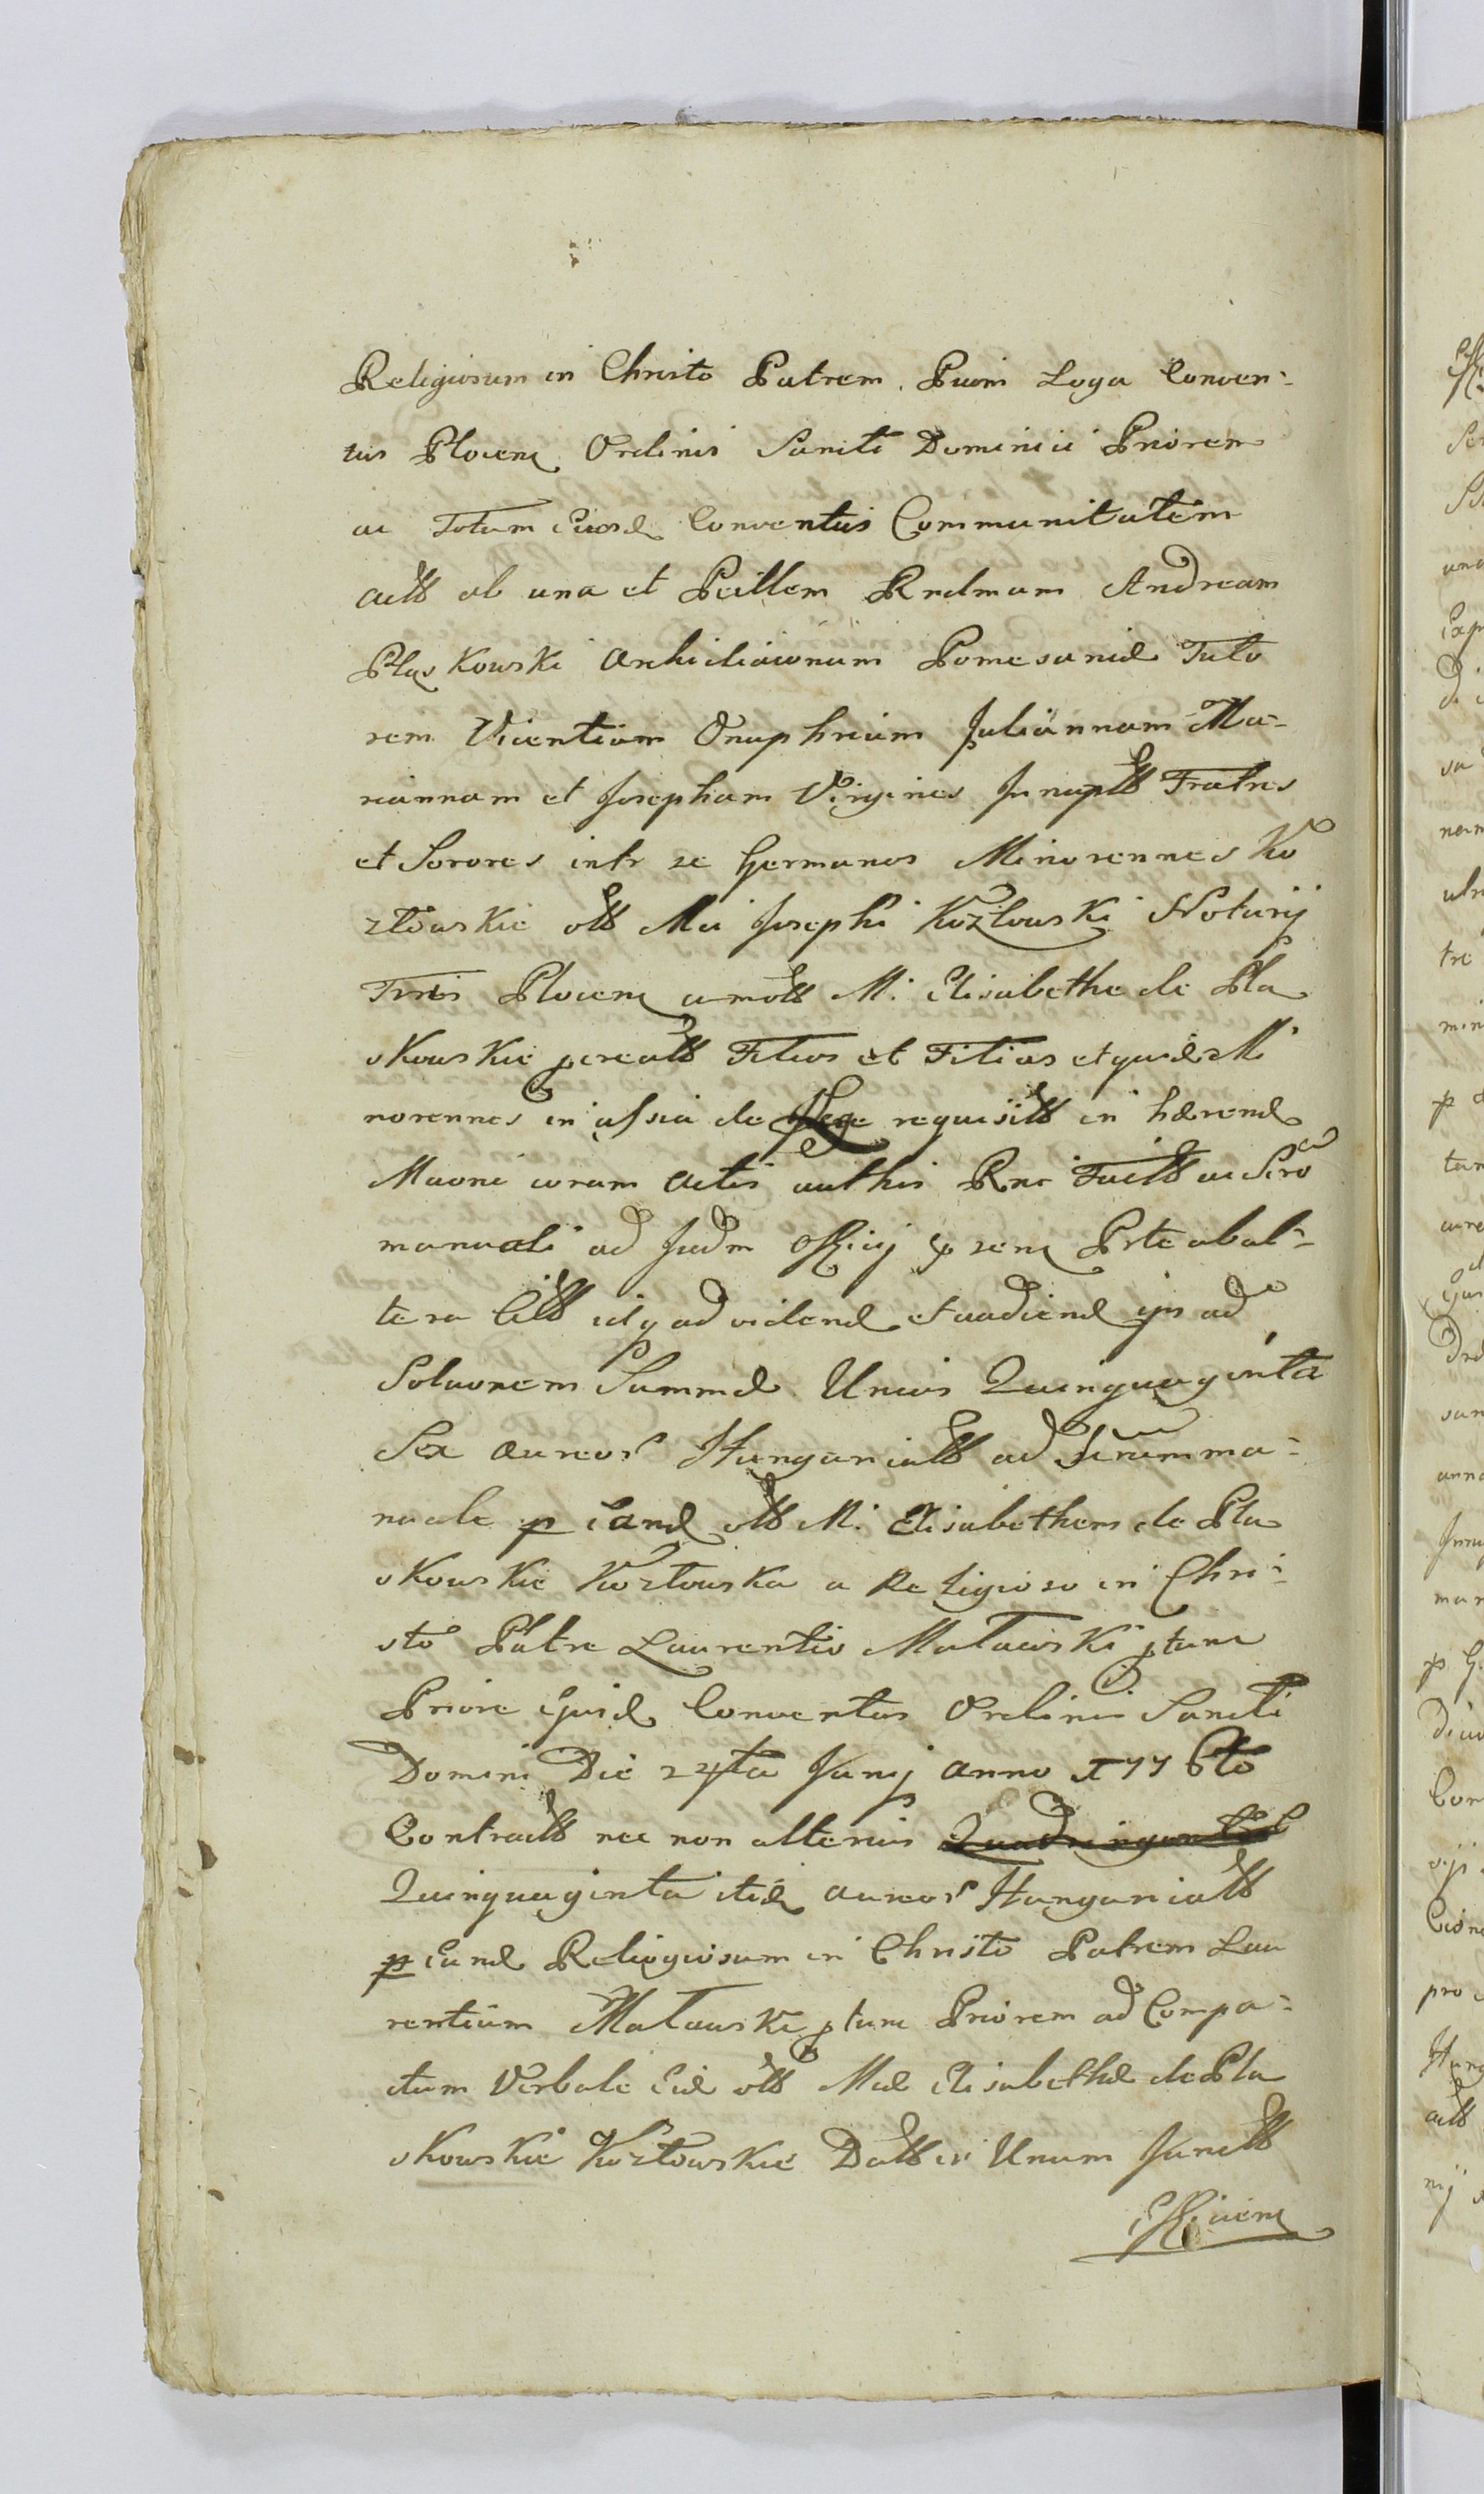 Religiosum in Christo Patrem Pium Loga Conven-
tus Plocens Ordinis Sancti Dominici Priorem
ac Totum Conventus Communitatem
actt ab una et Perillem Rndmum Andream
Plaskowski Archidiaconum Pomesaniæ Tuto
rem Vicentium Onuphrium Juliannam Ma-
riannam et Josepham Virgines Innuptt Fratres
et Sorores intr se Germanos Minorennes Ko
złowskie ott Mci Josephi Kozłowski Notarij
Tris Plocens amott M. Elisabethe de Pla
skowskie procreatt Filios et Filias et quid Mi
norennes in assia de Lege requisitt in hærend
Muoni coram Actis authis Rnc Factt ac Scro
manuali ad Judm Officij p rene Prte abal-
tera Citt idq ad vidend et audiend ips ad
Soluonem Summæ Unius Quinquaginta
Sex aureor Hungaricatt ad Scrum ma-
nuale p Eand ott M. Elisabetham de Pla
skowskie Kozłowska a Religioso in Chri-
sto Patre Laurentio Matawski ptunc
Priore Ejusd Conventus Ordinis Sancti
Domini Die 24ta Junij Anno 1776to
Contractt nec non alterius Quadringentor
Quinquaginta itid aureor Hungaricatt
p Eund Religiosum in Christo Patrem Lau
rentium Matawski ptunc Priorem ad Compa-
ctum Verbale Eid ott Mæ Elisabethæ de Pla
skowskie Kozłowskie Datt in Unum Junctt
Efficiens